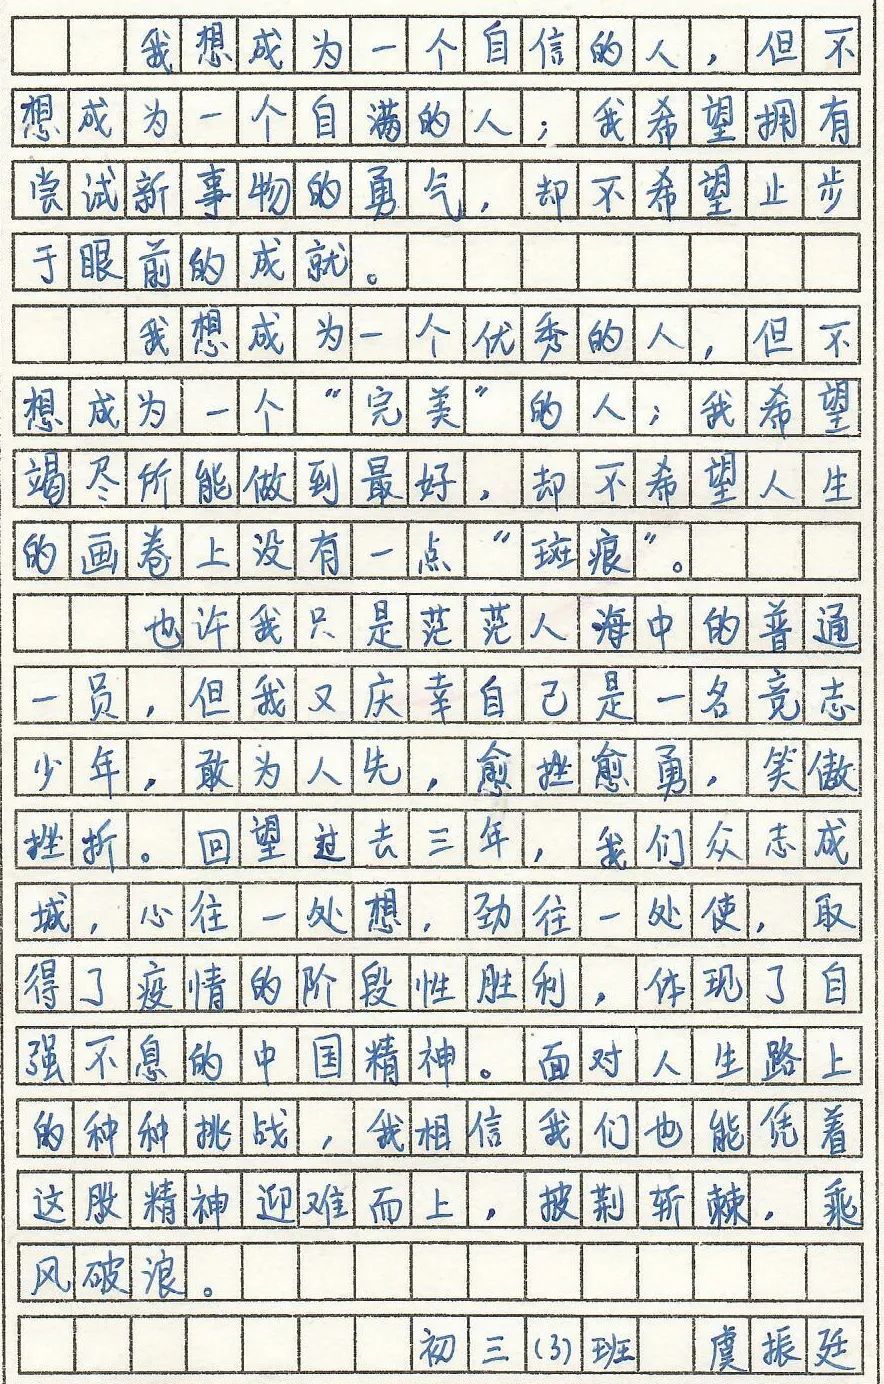 我想成为一个自信的人，但不
想成为一个自满的人；我希望拥有
尝试新事物的勇气，却不希望止步
于眼前的成就。
我想成为一个优秀的人，但不
想成为一个“完美”的人；我希望
竭尽所能做到最好，却不希望人生
的画卷上没有一点“斑痕”。
也许我只是茫茫人海中的普通
一员，但我又庆幸自己是一名竞志
少年，敢为人先，愈挫愈勇，笑傲
挫折。回望过去三年，我们众志成
城，心往一处想，劲往一处使，取
得了疫情的阶段性胜利，体现了自
强不息的中国精神。面对人生路上
的种种挑战，我相信我们也能凭着
这股精神迎难而上，披荆斩棘，乘
风破浪。
初三(3)班 虞振廷